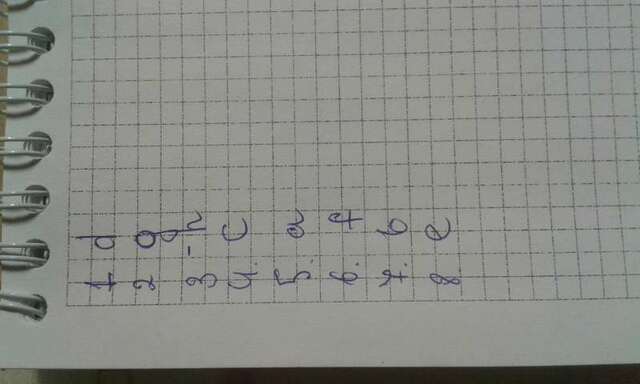 1 d
2 g
3 - h
4. c
5. a
6. f
7. b
8 e